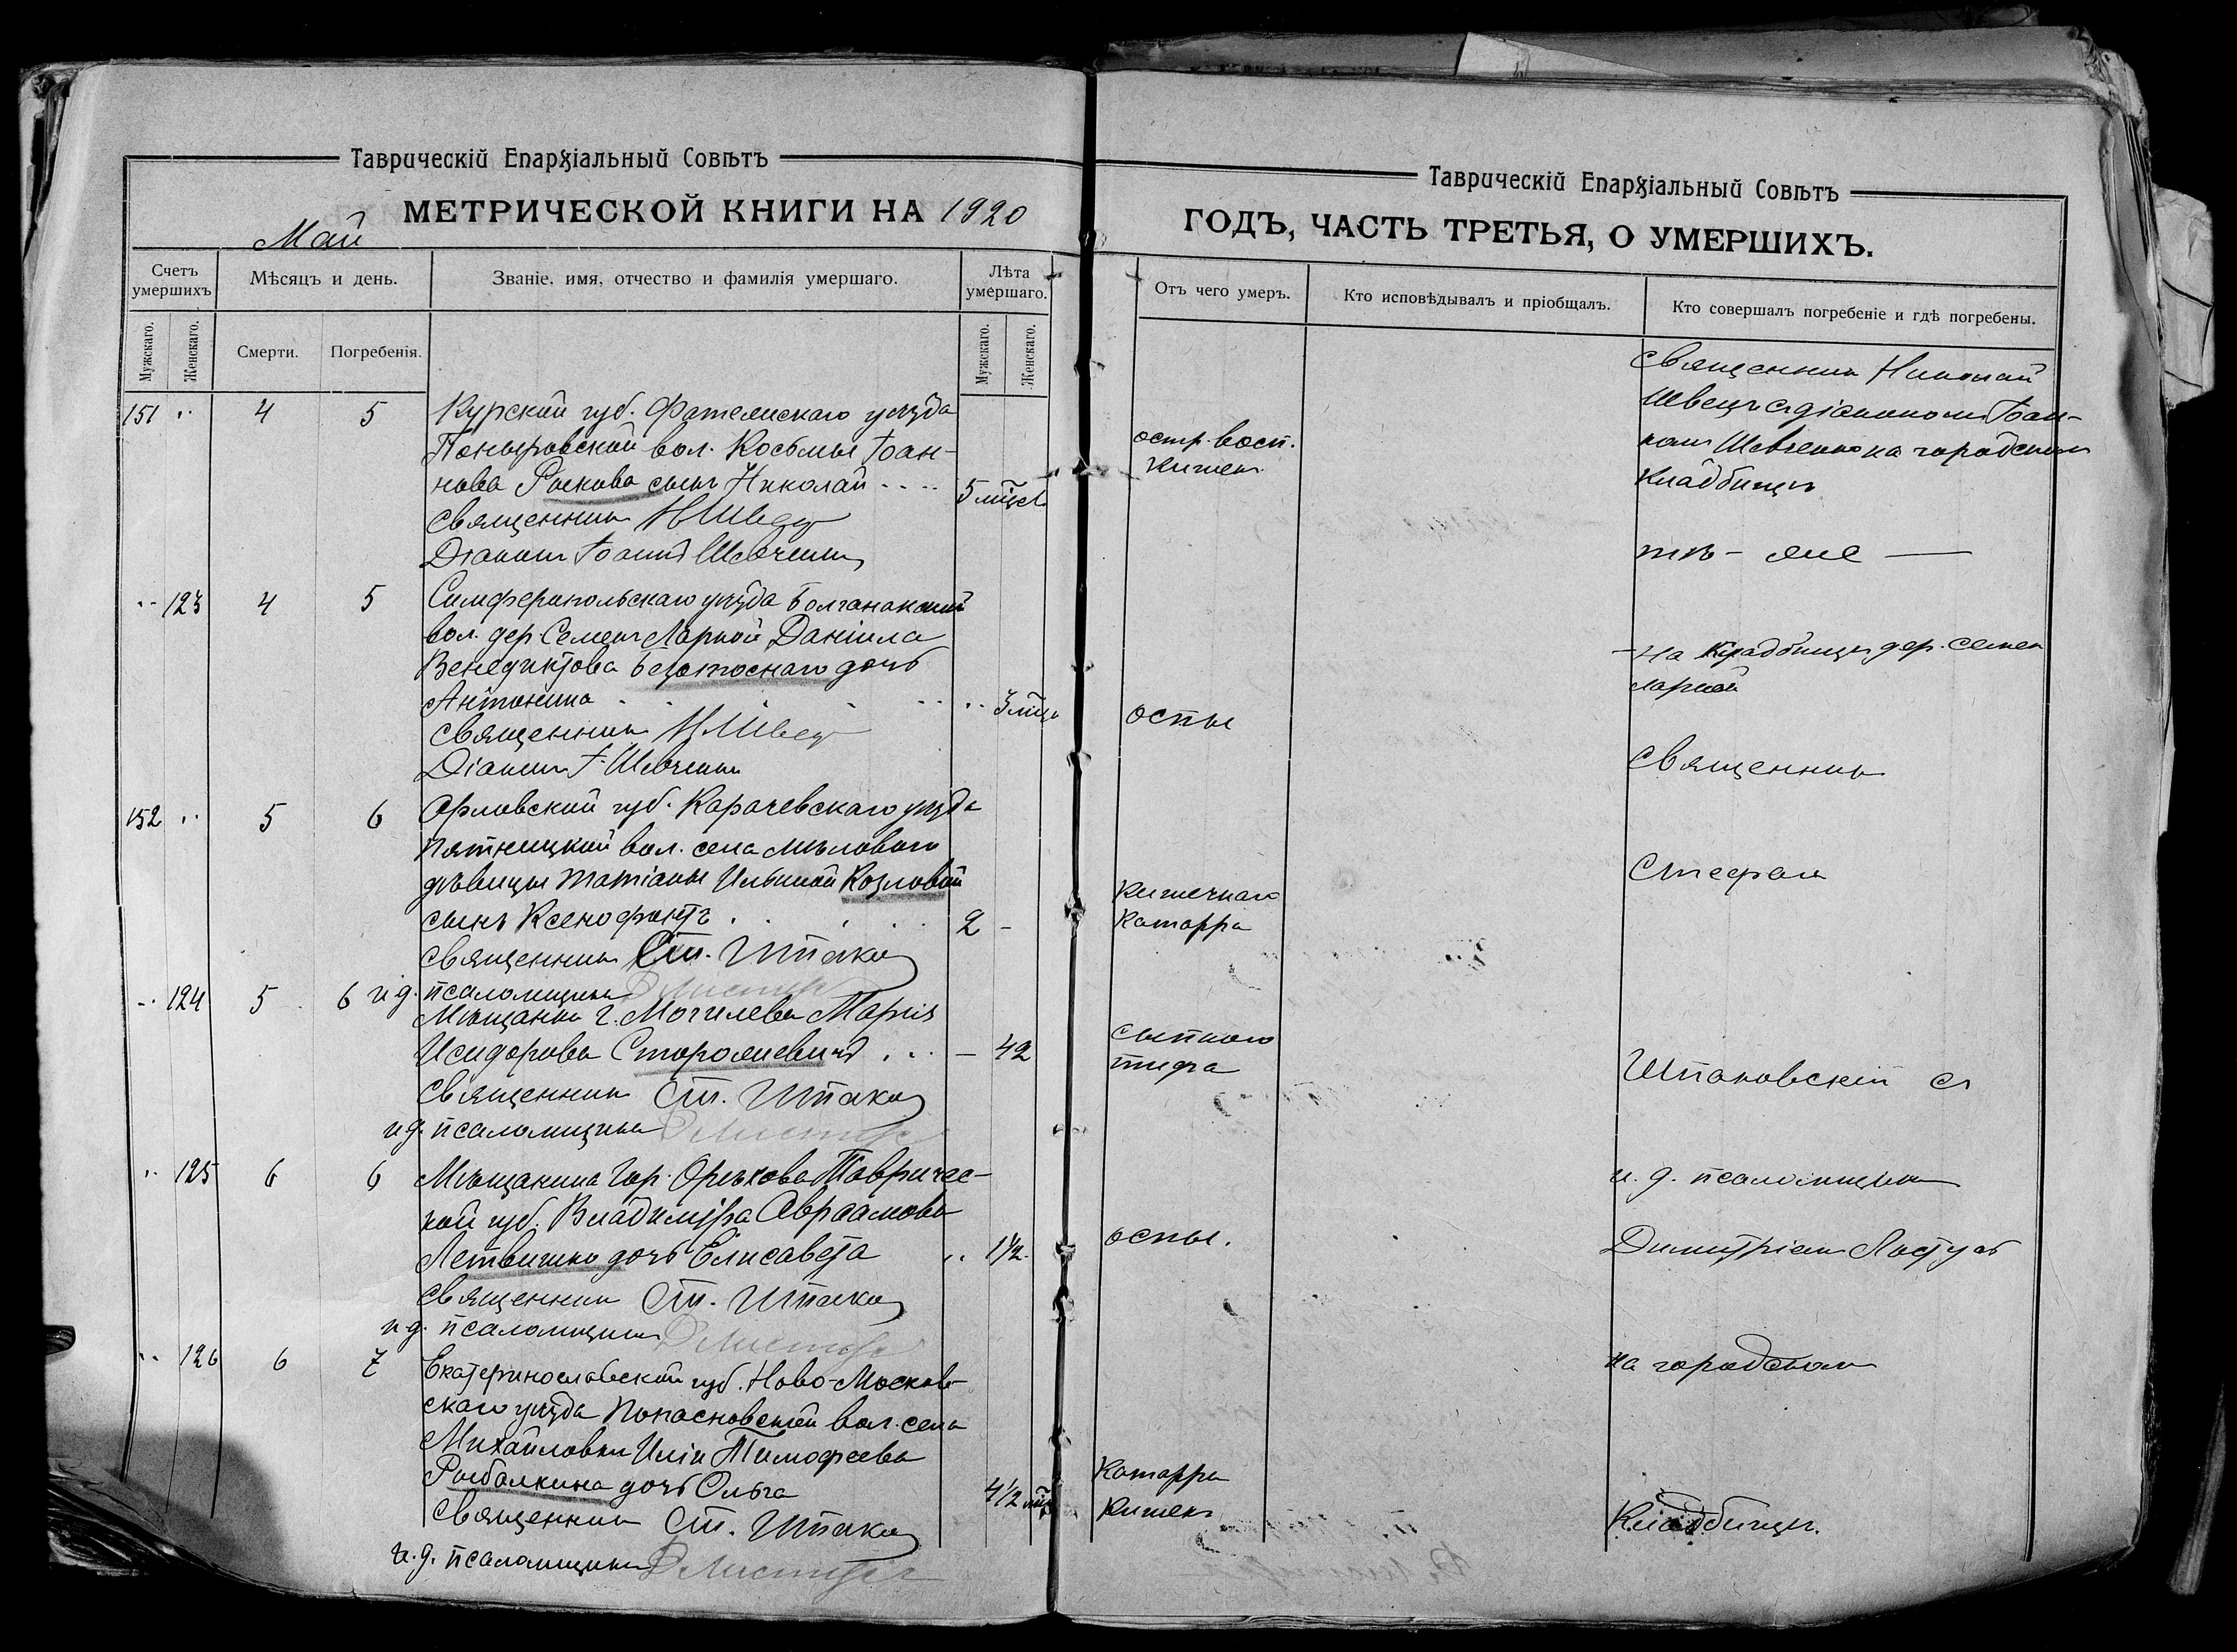 Таврическій Епархіальный Совѣтъ
МЕТРИЧЕСКОЙ КНИГИ НА 1920
Май
Счетъ умершихъ
Мѣсяцъ и день.
Званіе, имя, отчество и фамилія умершаго.
Лѣта умершаго.
Мужскаго.
Женскаго.
Смерти.
Погребенія.
Мужскаго.
Женскаго.
151 " 4 5 Курской губ. Фатежскаго уѣзда
Поныровской вол. Косьмы Іоан-
нова сынъ Николай .... 5 мѣсц
Священникъ НШвец
Діаконъ Іоаннъ Шевченко
" 123 4 5 Симферопольскаго уѣзда Булганакской
вол. дер. Семенъ Ларкой Даніила
Венедиктова дочь
Антонина . . . . . " 3 мѣц
Священникъ НШвец
Діаконъ І. Шевченко
152 " 5 6 Орловской губ. Карачевскаго уѣзда
Пятницкой вол. села
дѣвицы Татіаны Ильиной Козловой
сынъ Ксенофонтъ . . . . 2 -
Священникъ Ст. Шпака
" 124 5 6 и.д. псаломщика
Мѣщанка г. Могилева Марія
Исидорова ... - 42
Священникъ Ст. Шпака
и.д. псаломщика
" 125 6 6 Мѣщанина гор. Орѣхова Тавричес-
кой губ. Владиміра Авраамова
дочь Елисавета " 1½
Священникъ Ст. Шпака
и.д. псаломщика
" 126 6 7 Екатеринославской губ. Ново-Москов-
скаго уѣзда Попасновской вол. села
Михайловки Иліи Тимофеева
Рыбалкина дочь Ольга 4½ мѣц
Священникъ Ст. Шпака
и.д. псаломщика
Таврическій Епархіальный Совѣтъ
ГОДЪ, ЧАСТЬ ТРЕТЬЯ, О УМЕРШИХЪ.
Отъ чего умеръ.
Кто исповѣдывалъ и пріобщалъ.
Кто совершалъ погребеніе и гдѣ погребены.
Священникъ Николай
Швецъ съ діакономъ Іоан-
номъ Шевченко на городскомъ
кладбищѣ
остр. восп.
кишекъ
тѣ - же —
на кладбищѣ дер. Семен
Ларкой
оспы
Священникъ
Стефанъ
кишечнаго
катарра
сыпного
тифа
Шпаковскій съ
и. д. псаломщика
оспы.
Димитріемъ
на городскомъ
катарра
кишекъ
кладбищѣ.